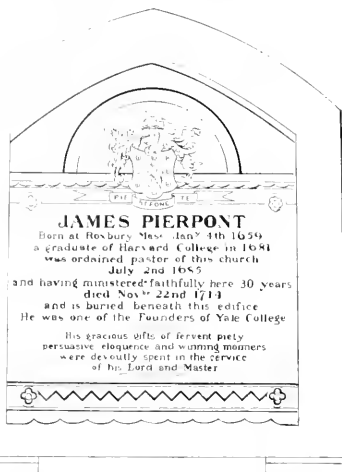 PIE TE
REPONE
JAMES PIERPONT
Born at Roxbury Mass Jany 4th 1659
a graduate of Harvard College in 1681
was ordained pastor of this church
July 2nd 1685
and having ministered faithfully here 30 years
died Novbr 22nd 1714
and is buried beneath this edifice
He was one of the Founders of Yale College
His gracious gifts of fervent piety
persuasive eloquence and winning manners
were devoutly spent in the service
of his Lord and Master